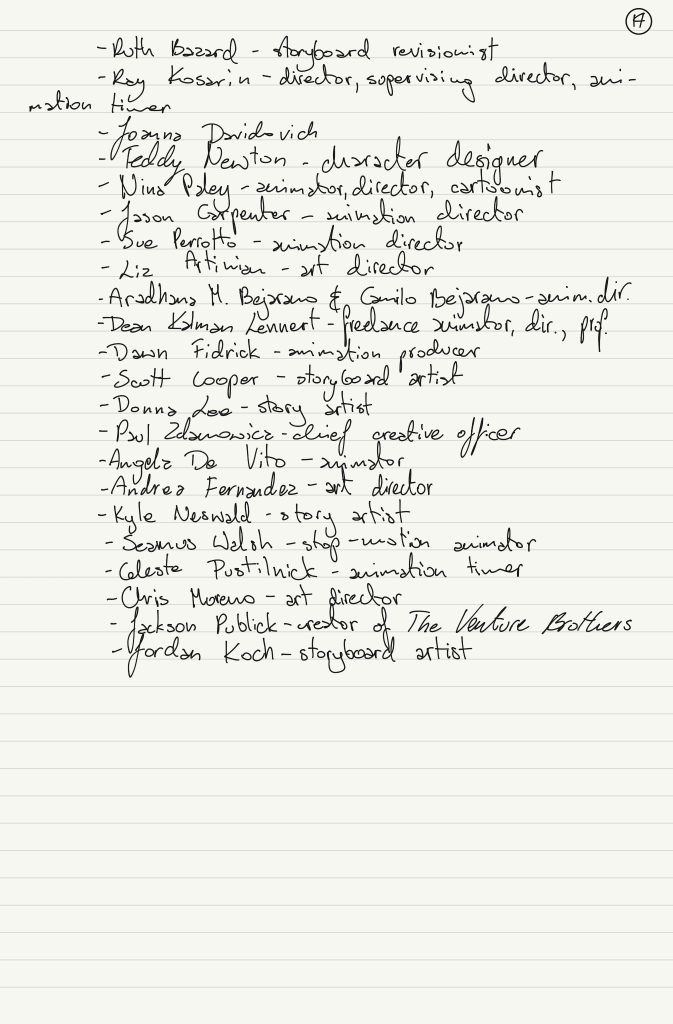 17
- Ruth Bazard - storyboard revisionist
- Ray Kosarin - director, supervising director, ani-
mation timer
- Joanna Davidovich
- Teddy Newton - character designer
- Nina Paley - animator, director, cartoonist
- Jason Carpenter - animation director
- Sue Perrotto - animation director
- Liz Artinian - art director
- Aradhana M. Bejarano & Camilo Bejarano - anim. dir.
- Dean Kalman Lennert - freelance animator, dir., prof.
- Dawn Fidrick - animation producer
- Scott Cooper - storyboard artist
- Donna Lee - story artist
- Paul Zdanowicz - chief creative officer
- Angela De Vito - animator
- Andrea Fernandez - art director
- Kyle Neswald - story artist
- Seamus Walsh - stop-motion animator
- Celeste Pustilnick - animation timer
- Chris Moreno - art director
- Jackson Publick - creator of The Venture Brothers
- Jordan Koch - storyboard artist